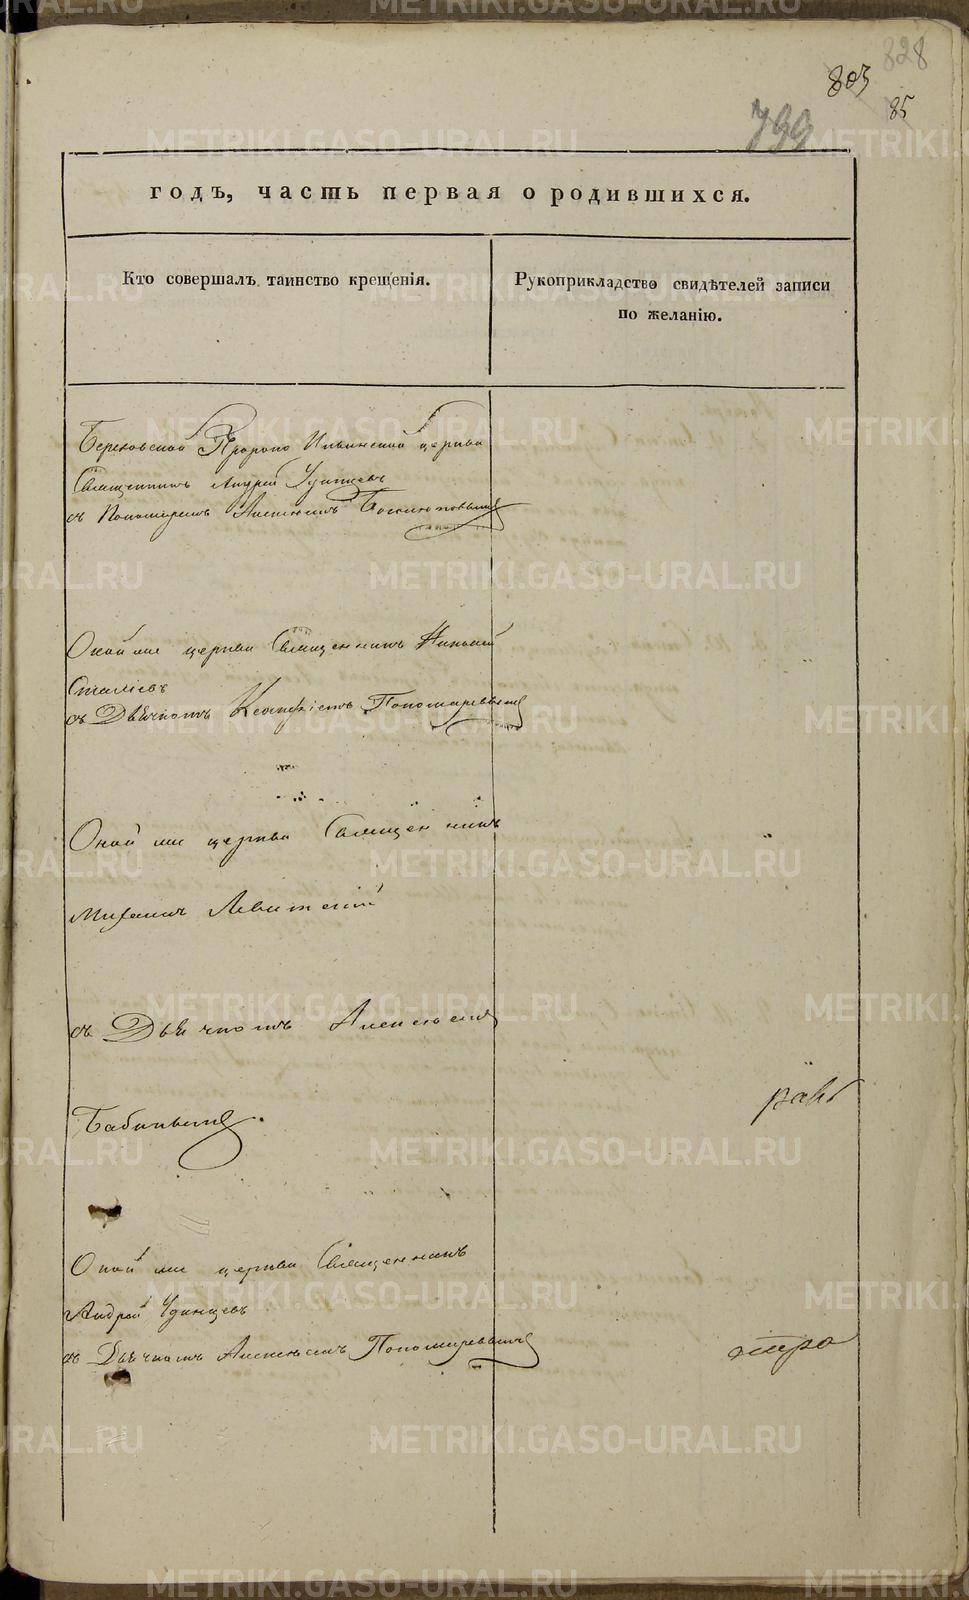 828
803
85
799
годъ, часть первая о родившихся.
Кто совершалъ таинство крещенія.
Рукоприкладство свидѣтелей записи
по желанію.
Пророко Ильинской церкви
Священникъ Андрей Удинцевъ
съ Пономаремъ Алексѣемъ
Оной же церкви Священникъ Николай
съ Дьячкомъ Пономаревымъ
Оной же церкви Священникъ
Михаилъ Левитскій
съ Дьячкомъ Алексѣемъ
Бабинымъ.
Оной же церкви Священникъ
Андрей Удинцевъ
съ Дьячкомъ Алексѣемъ Пономаревымъ
METRIKI.GASO-URAL.RU